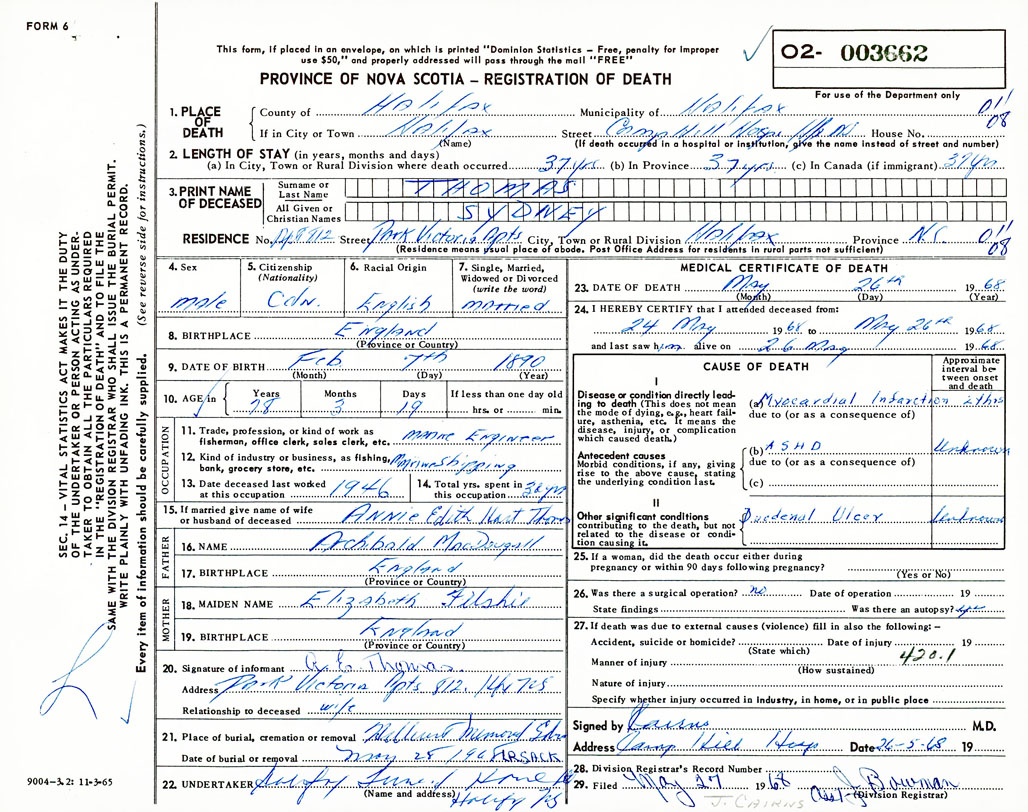 FORM 6
This form, if placed in an envelope, on which is printed "Dominion Statistics – Free, penalty for improper
use $50," and properly addressed will pass through the mail "FREE"
PROVINCE OF NOVA SCOTIA – REGISTRATION OF DEATH
02- 003662
For use of the Department only
SEC. 14 – VITAL STATISTICS ACT MAKES IT THE DUTY
OF THE UNDERTAKER OR PERSON ACTING AS UNDER-
TAKER TO OBTAIN ALL THE PARTICULARS REQUIRED
IN THE "REGISTRATION OF DEATH" AND TO FILE THE
SAME WITH THE DIVISION REGISTRAR WHO SHALL ISSUE THE BURIAL PERMIT.
WRITE PLAINLY WITH UNFADING INK. THIS IS A PERMANENT RECORD.
Every item of information should be carefully supplied. (See reverse side for instructions.)
1. PLACE OF DEATH County of Halifax Municipality of Halifax 011
If in City or Town Halifax Street Camp Hill Hospital House No. 08
(Name) (If death occurred in a hospital or institution, give the name instead of street and number)
2. LENGTH OF STAY (in years, months and days)
(a) In City, Town or Rural Division where death occurred 37 yrs (b) In Province 37 yrs (c) In Canada (if immigrant) 37 yrs
3. PRINT NAME OF DECEASED Surname or Last Name THOMAS
All Given or Christian Names SYDNEY
RESIDENCE No. Street Park Victoria Apts City, Town or Rural Division Halifax Province N.S. 011
(Residence means usual place of abode. Post Office Address for residents in rural parts not sufficient) 08
4. Sex
male
5. Citizenship
(Nationality)
Cdn.
6. Racial Origin
English
7. Single, Married,
Widowed or Divorced
(write the word)
married
8. BIRTHPLACE England
(Province or Country)
9. DATE OF BIRTH Feb 7th 1890
(Month) (Day) (Year)
10. AGE in Years Months Days If less than one day old
78 3 19 hrs. or min.
OCCUPATION
11. Trade, profession, or kind of work as
fisherman, office clerk, sales clerk, etc. marine Engineer
12. Kind of industry or business, as fishing,
bank, grocery store, etc. Marine Shipping
13. Date deceased last worked
at this occupation 1946
14. Total yrs. spent in
this occupation yrs
15. If married give name of wife
or husband of deceased ANNIE Edith Hunt Thomas
FATHER
16. NAME Archibald MacDougall
17. BIRTHPLACE England
(Province or Country)
MOTHER
18. MAIDEN NAME Elizabeth Filshie
19. BIRTHPLACE England
(Province or Country)
20. Signature of informant A. E. Thomas
Address Park Victoria Apts 812
Relationship to deceased wife
21. Place of burial, cremation or removal
Date of burial or removal May 28 1968
22. UNDERTAKER Funeral Home
(Name and address) Halifax N.S.
9004-3.2: 11-3-65
MEDICAL CERTIFICATE OF DEATH
23. DATE OF DEATH May 26th 19 68
(Month) (Day) (Year)
24. I HEREBY CERTIFY that I attended deceased from:
24 May 19 68 to May 26th 19 68
and last saw him alive on 26 May 19 68
CAUSE OF DEATH
Approximate
interval be-
tween onset
and death
I
Disease or condition directly lead-
ing to death (This does not mean
the mode of dying, e.g., heart fail-
ure, asthenia, etc. It means the
disease, injury, or complication
which caused death.)
(a) Myocardial Infarction 2 hrs
due to (or as a consequence of)
Antecedent causes
Morbid conditions, if any, giving
rise to the above cause, stating
the underlying condition last.
(b) ASHD Unknown
due to (or as a consequence of)
(c)
II
Other significant conditions
contributing to the death, but not
related to the disease or condi-
tion causing it.
Duodenal Ulcer Unknown
25. If a woman, did the death occur either during
pregnancy or within 90 days following pregnancy?
(Yes or No)
26. Was there a surgical operation? no Date of operation 19
State findings Was there an autopsy? yes
27. If death was due to external causes (violence) fill in also the following:–
Accident, suicide or homicide? Date of injury 19
(State which)
Manner of injury 420.1
(How sustained)
Nature of injury
Specify whether injury occurred in Industry, in home, or in public place
Signed by Cairns M.D.
Address Camp Hill Hosp Date 26-5-68 19
28. Division Registrar's Record Number
29. Filed May 27 19 68 J. Bowman
(Division Registrar)
J. CAIRNS